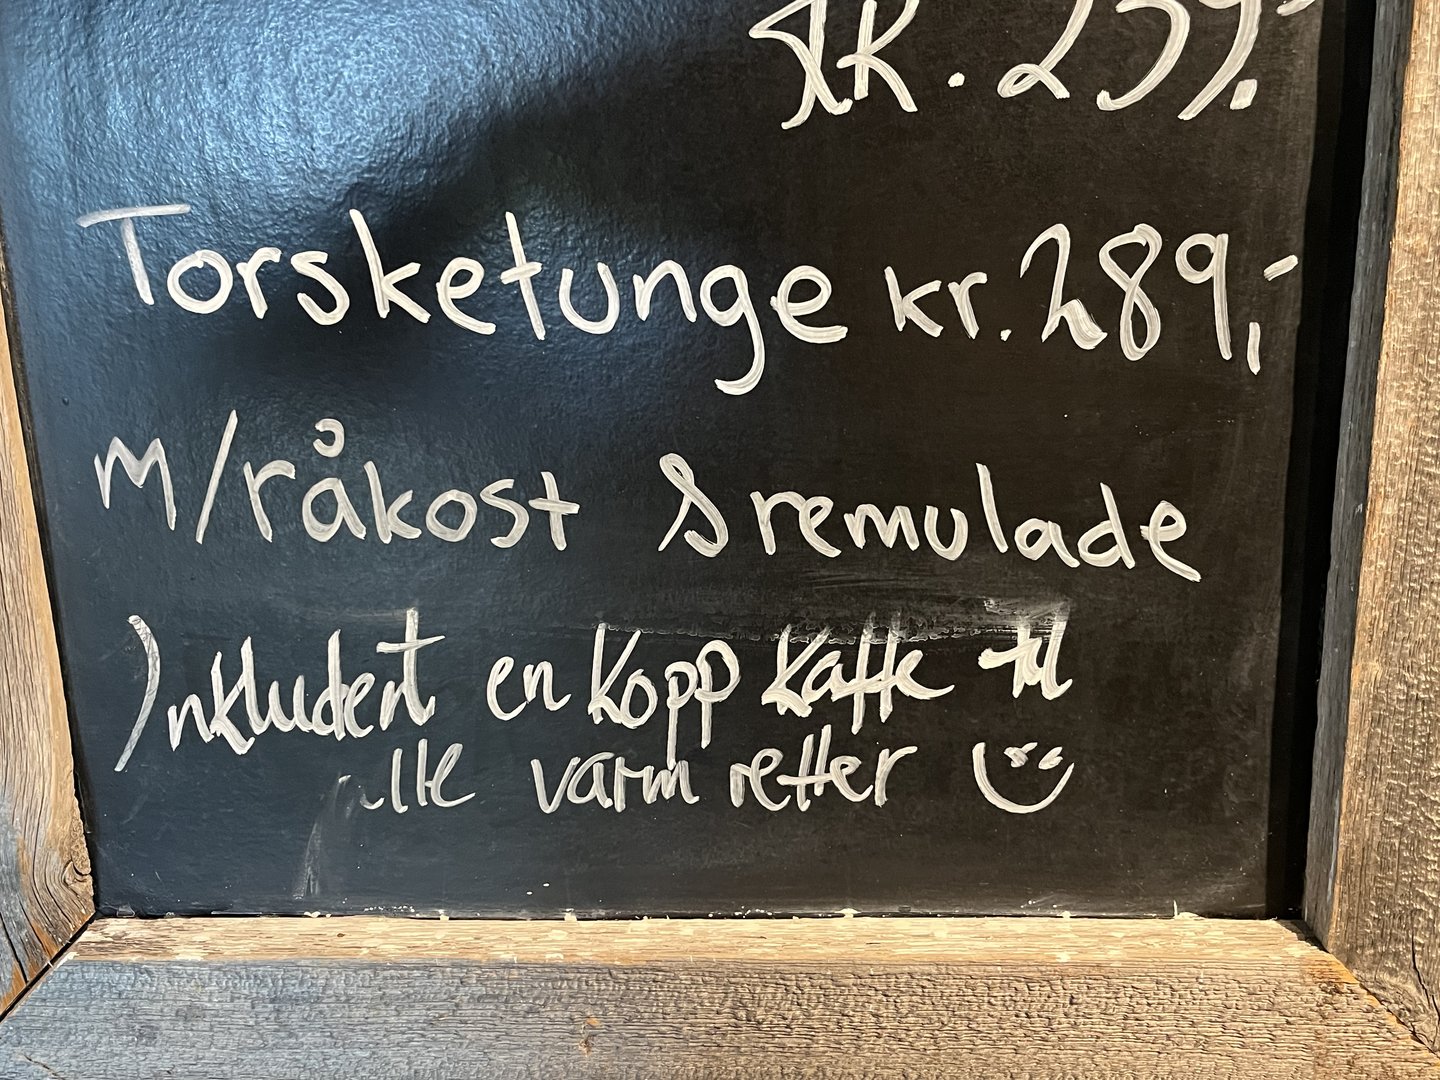 KR. 259,-
Torsketunge kr. 289,-
M/råkost & remulade
Inkludert en kopp kaffe til
alle varm retter